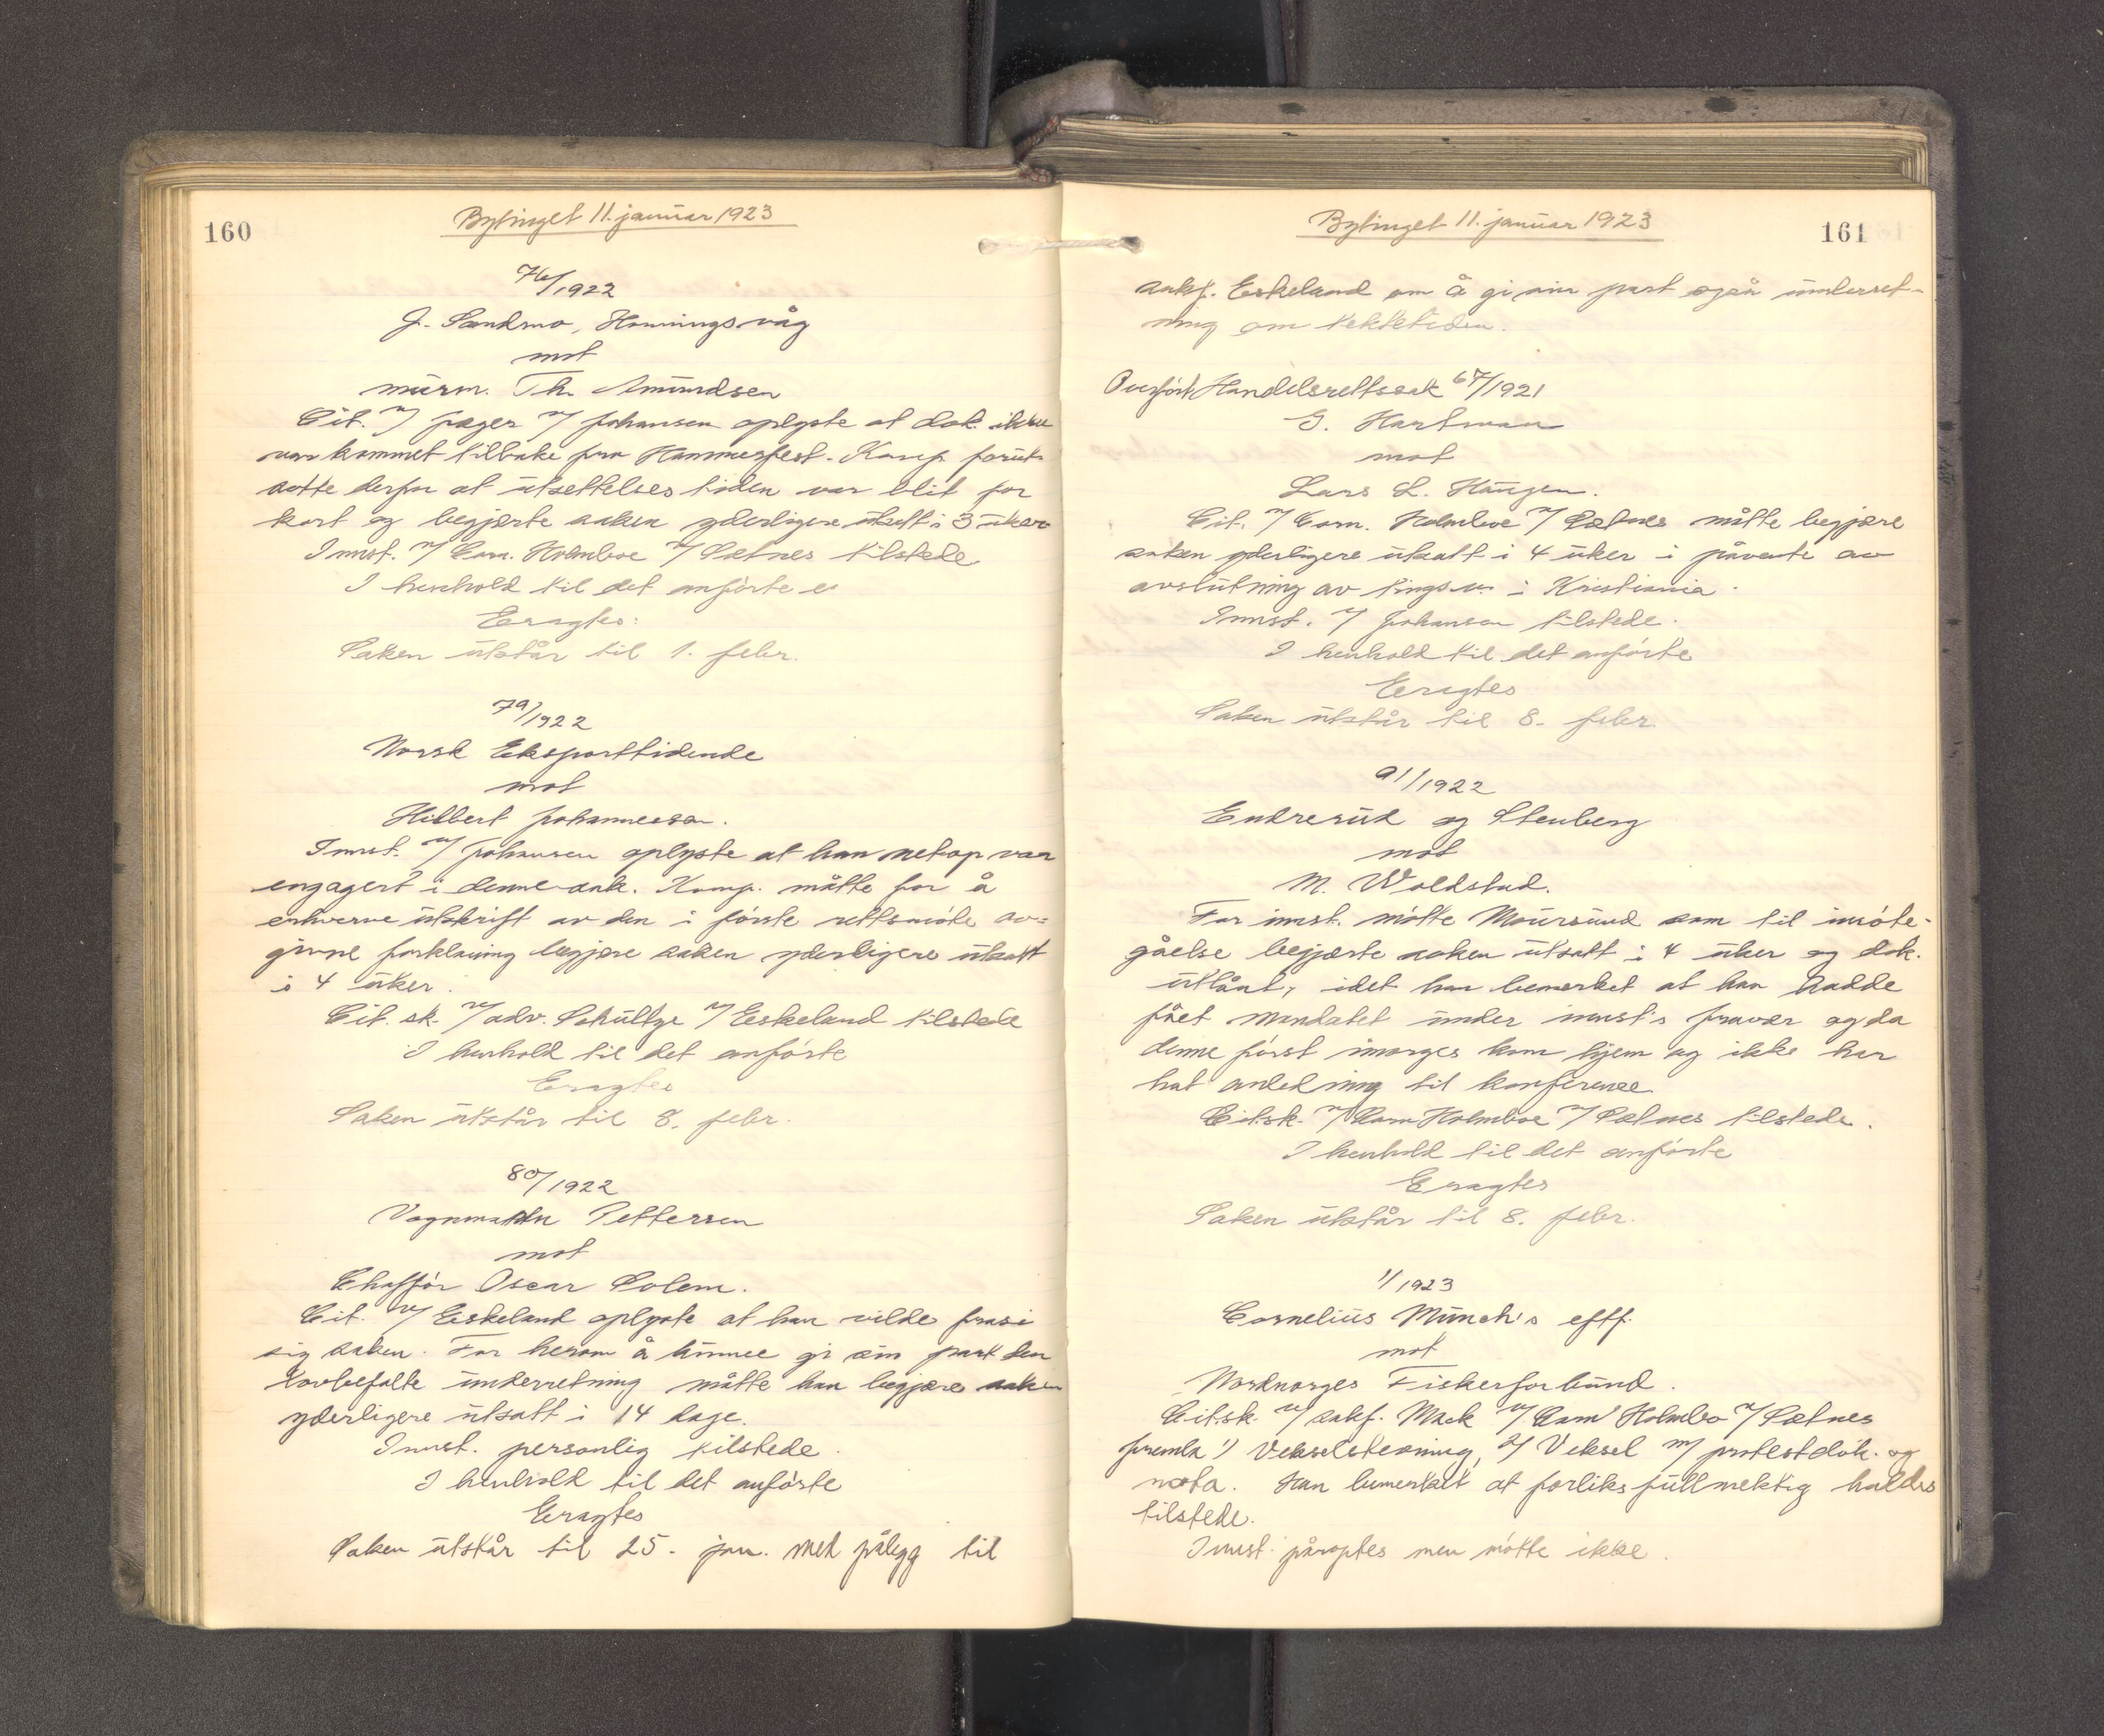 160
Bytinget 11. januar 1923
76/1922
J. Sandmo, Honningsvåg
mot
murm. Th. Amundsen
Cit. v/ Jæger v/ Johansen oplyste at dok. ikke
var kommet tilbake fra Hammerfest. Komp. forut-
satte derfor at utsettelsestiden var blit for
kort og begjærte saken yderligere utsatt i 3 uker
Innst. v/ Corn. Holmboe v/ Sætnes tilstede
I henhold til det anførte er
Eragtes:
Saken utstår til 1. febr.
79/1922
Norsk Eksporttidende
mot
Hilbert Johannessen.
Innst. v/ Johansen oplyste at han netop var
engagert i denne sak. Komp. måtte for å
erhverve utskrift av den i første rettsmøte av-
givne forklaring begjære saken yderligere utsatt
i 4 uker.
Cit. sk. v/ adv. Schultze v/ Eskeland tilstede
I henhold til det anførte
Eragtes
Saken utstår til 8. febr.
80/1922
Vognmann Pettersen
mot
Chaffør Oscar Solem.
Cit. v/ Eskeland oplyste at han vilde frasi
sig saken. For herom å kunne gi sin part den
lovbefalte underretning måtte han begjære saken
yderligere utsatt i 14 dage.
Innst. personlig tilstede.
I henhold til det anførte
Eragtes
Saken utstår til 25. jan. med pålegg til
Bytinget 11. januar 1923
161
sakf. Eskeland om å gi sin part også underret-
ning om rettstiden.
Overført Handelsrettssak 67/1921
G. Hartman
mot
Lars L. Haugen.
Cit. v/ Corn. Holmboe v/ Sætnes måtte begjære
saken yderligere utsatt i 4 uker i påvente av
avslutning av tingsv. i Kristiania.
Innst. v/ Johansen tilstede.
I henhold til det anførte
Eragtes
Saken utstår til 8. febr.
91/1922
Endrerud og Stenberg
mot
M. Woldstad.
For innst. møtte Moursund som til imøte-
gåelse begjærte saken utsatt i 4 uker og dok.
utlånt, idet han bemerket at han hadde
fået mandatet under innst's fravær og da
denne først imorges kom hjem og ikke har
hat anledning til konferance.
Cit.sk. v/ Corn Holmboe v/ Sætnes tilstede.
I henhold til det anførte
Eragtes
Saken utstår til 8. febr.
1/1923
Cornelius Münch's eftf.
mot
Nordnorges Fiskerforbund.
Cit.sk. v/ sakf. Mack v/ Corn Holmboe v/ Sætnes
fremla 1/ Vekselstevning, 2/ Veksel m/ protestdok. og
nota. Han bemerket at forliksfullmektig holdes
tilstede.
Innst. påroptes men møtte ikke.